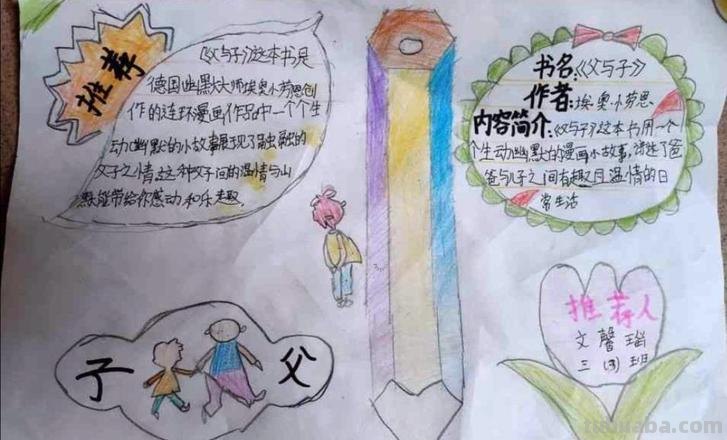 推荐
《父与子》这本书是
德国幽默大师埃·奥·卜劳恩创
作的连环漫画作品中一个个生
动幽默的小故事展现了融融的
父子之情,这种父子间的温情与幽
默能带给你感动和乐趣。
书名:《父与子》
作者:埃·奥·卜劳恩
内容简介:《父与子》这本书用一个
个生动幽默的漫画小故事,讲述了爸
爸与儿子之间有趣又温情的日
常生活
子
父
推荐人
文馨瑶
三(3)班